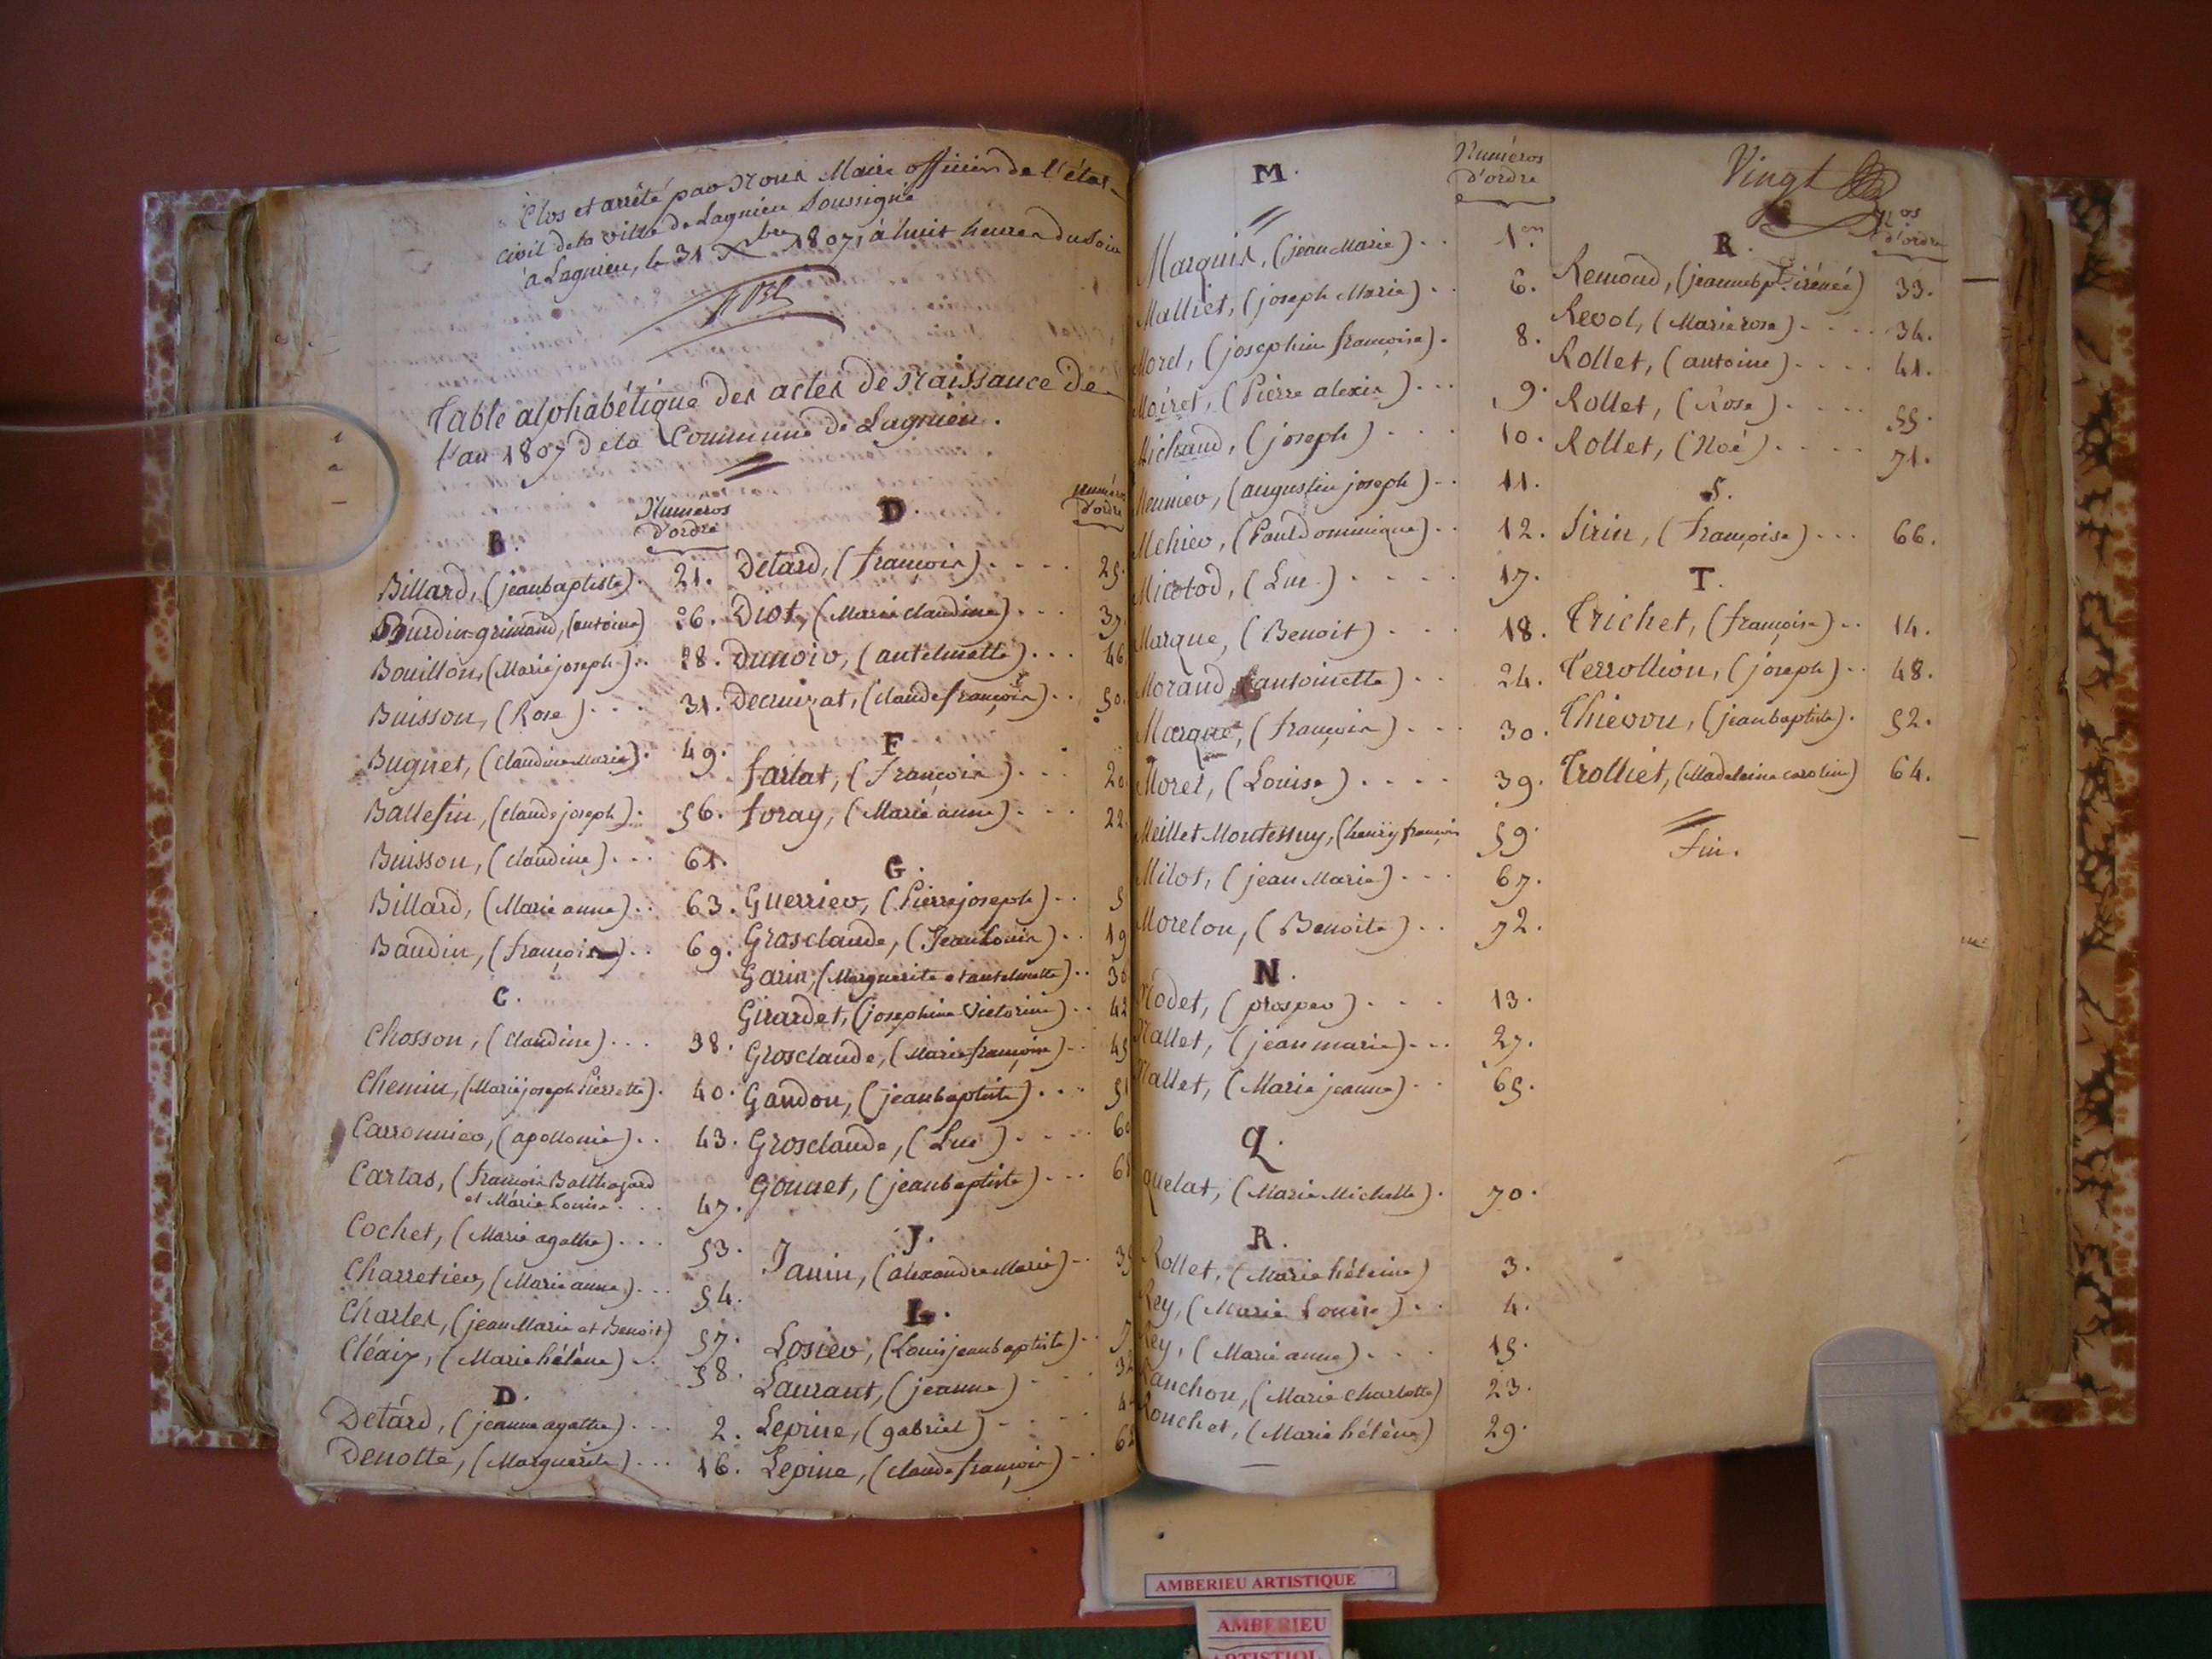 Clos et arrêté par Nous Maire officier de l'état
civil de la ville de Lagnieu Soussigné
à Lagnieu, le 31 Xbre 1807, à huit heures du soir
Table alphabétique des actes de Naissance de
l'an 1807 de la Commune de Lagnieu.
Numéros
d'ordre
B.
Billard, (jean baptiste). 21.
Bourdin=grimaud, (antoine) 26.
Bouillon, (Marie joseph).. 28.
Buisson, (Rose).... 31.
Buguet, (Claudine Marie). 49.
Ballefin, (Claude joseph). 56.
Buisson, (Claudine)... 61.
Billard, (Marie anne).. 63.
Baudin, (françois).. 69.
C.
Chosson, (Claudine)... 38.
Chemin, (Marie joseph Pierrette). 40.
Carronnier, (apollonie).. 43.
Cartas, (françois Balthazard
et Marie Louise.... 47.
Cochet, (Marie agathe).... 53.
Charretier, (Marie anne)... 54.
Charles, (jean Marie et Benoit) 57.
Cléaix, (Marie hélène).. 58.
D.
Detard, (jeanne agathe)... 2.
Denotte, (Marguerite)... 16.
Numéros
d'ordre
D.
Detard, (françois)..... 25.
Diot, (Marie claudine)... 37.
Dunoir, (antelmette)... 46
Decruizat, (Claude françois).. 50.
F
farlat, (françois)... 20
foray, (Marie anne).... 22.
G.
Guerrier, (Pierre joseph).. 5
Grosclaude, (Jean Louis).. 19
Garin, (Marguerite et antelmette)..
Girardet, (josephine Victorine).. 42
Grosclaude, (Marie françoise).. 45
Gaudon, (jean baptiste).... 51
Grosclaude, (Luc)....
Gonnet, (jean baptiste)...
J.
Janin, (alexandre Marie)..
L.
Losier, (Louis jean baptiste).. 7
Laurant, (jeanne).... 32
Lepine, (gabriel)....
Lepine, (Claude françois)..
M.
Numéros
d'ordre
Marquis, (jean Marie).. 1er.
Malliet, (joseph Marie).. 6.
Morel, (josephine françoise). 8.
Moiret, (Pierre alexis)... 9.
Michaud, (joseph).... 10.
Meunier, (augustin joseph).. 11.
Mehier, (Paul Dominique).. 12.
Micotod, (Luc)..... 17.
Marque, (Benoit).... 18.
Morand, (antoinette).. 24.
Marque, (françois)... 30.
Morel, (Louise).... 39.
Meillet Montessuy, (henry françois 59.
Milot, (jean Marie)... 67.
Morelon, (Benoite).. 72.
N.
Nodet, (prosper).... 13.
Nallet, (jean marie)... 27.
Nallet, (Marie jeanne).. 65.
Q.
Quelat, (Marie Michelle). 70.
R.
Rollet, (Marie héleine) 3.
Rey, (Marie Louise).. 4.
Rey, (Marie anne).... 15.
Ranchon, (Marie Charlotte) 23.
Ronchet, (Marie hélène) 29.
Vingt
Nos
d'ordre
R.
Remond, (jeanne bpte irénée) 33.
Revol, (Marie rose)..... 34.
Rollet, (antoine).... 41.
Rollet, (Rose).... 55.
Rollet, (Noé)..... 71.
S.
Sirin, (françoise)... 66.
T.
Trichet, (françoise).. 14.
Terrollion, (joseph).. 48.
Thievou, (jean baptiste). 52.
Trolliet, (Madeleine caroline) 64.
fin.
AMBERIEU ARTISTIQUE
AMBERIEU